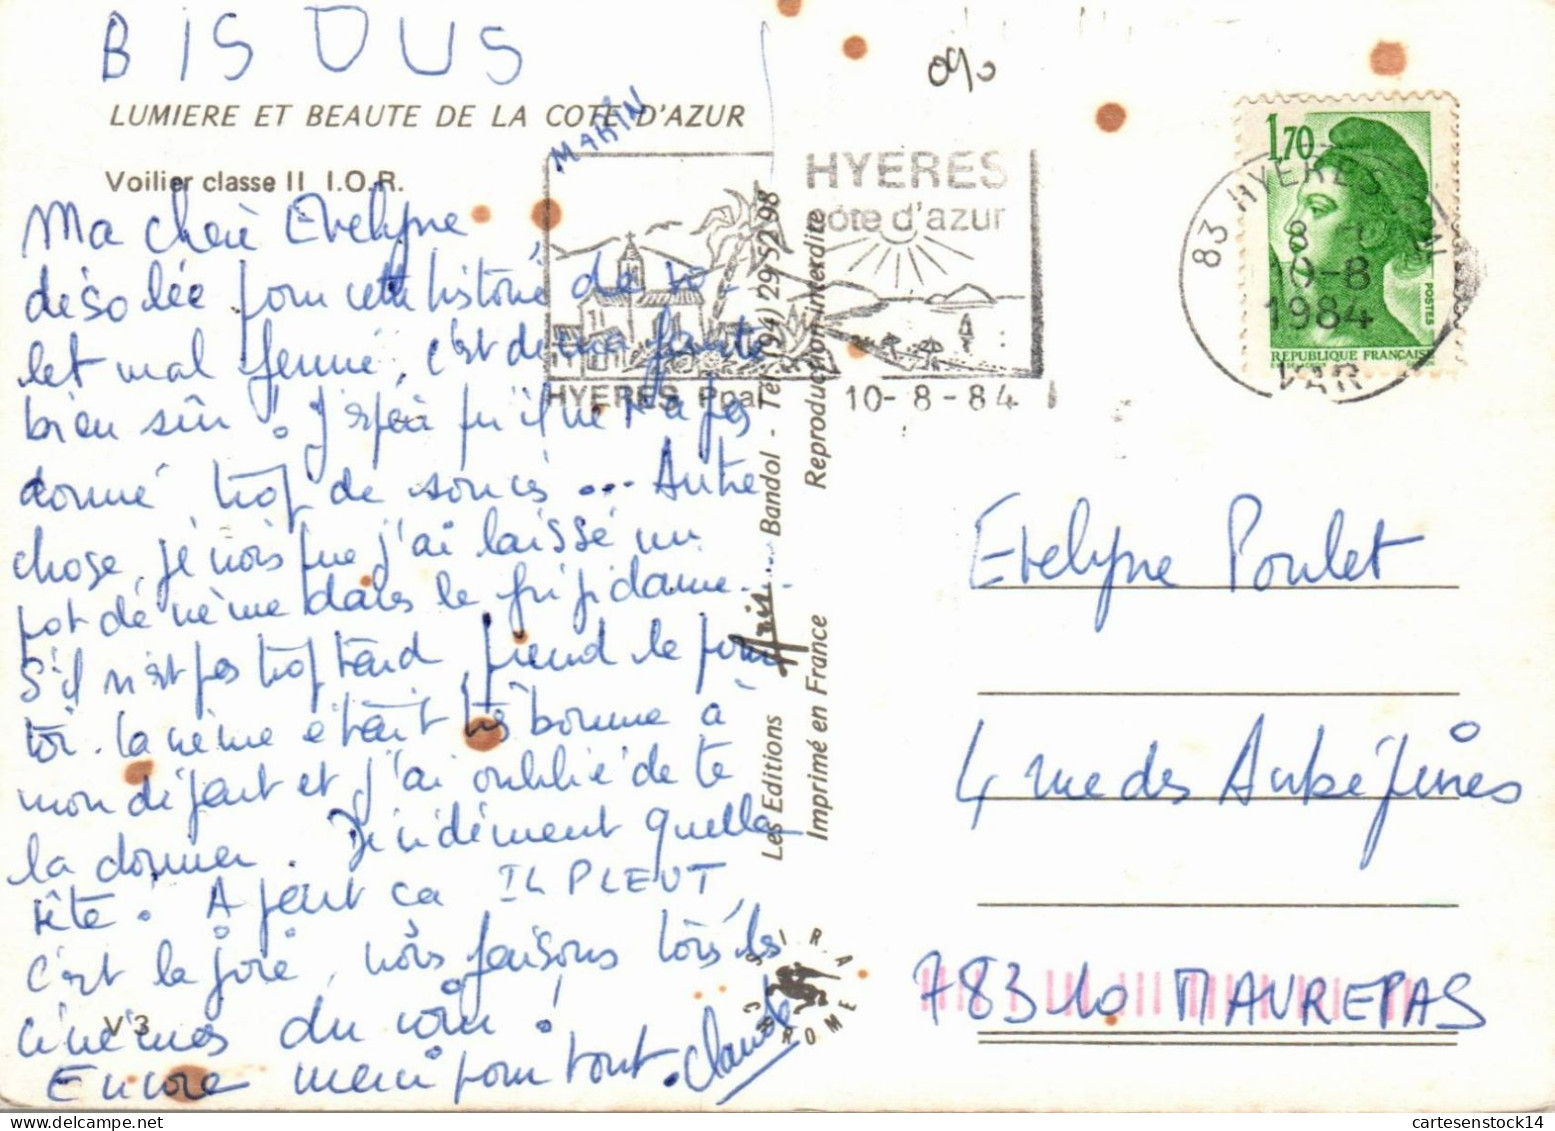 BISOUS
LUMIERE ET BEAUTE DE LA COTE D'AZUR
MARIN
Voilier classe II I.O.R.
Ma chère Evelyne
désolée pour cette histoire de vo-
let mal fermé, c'est de ma faute
bien sûr. J'espère qu'il ne t'a pas
donné trop de soucis ... Autre
chose, je crois que j'ai laissé un
pot de crème dans le frigidaire...
S'il n'est pas trop tard, prend le pour
toi. la crème était très bonne à
mon départ et j'ai oublié de te
la donner. Décidément quelle
tête. A part ça IL PLEUT,
c'est la joie, nous faisons tous les
cinémas du coin !
Encore merci pour tout. Claude
V 3
HYERES
côte d'azur
HYERES Ppal 10-8-84
Les Editions Aris... Bandol - Tél. (94) 29 52 98
Imprimé en France Reproduction interdite
S.I.R.A.
CHROME
1,70
POSTES
REPUBLIQUE FRANÇAISE
83 HYERES
10-8
1984
VAR
Evelyne Poulet
4 rue des Aubépines
78310 MAUREPAS
cartesenstock14